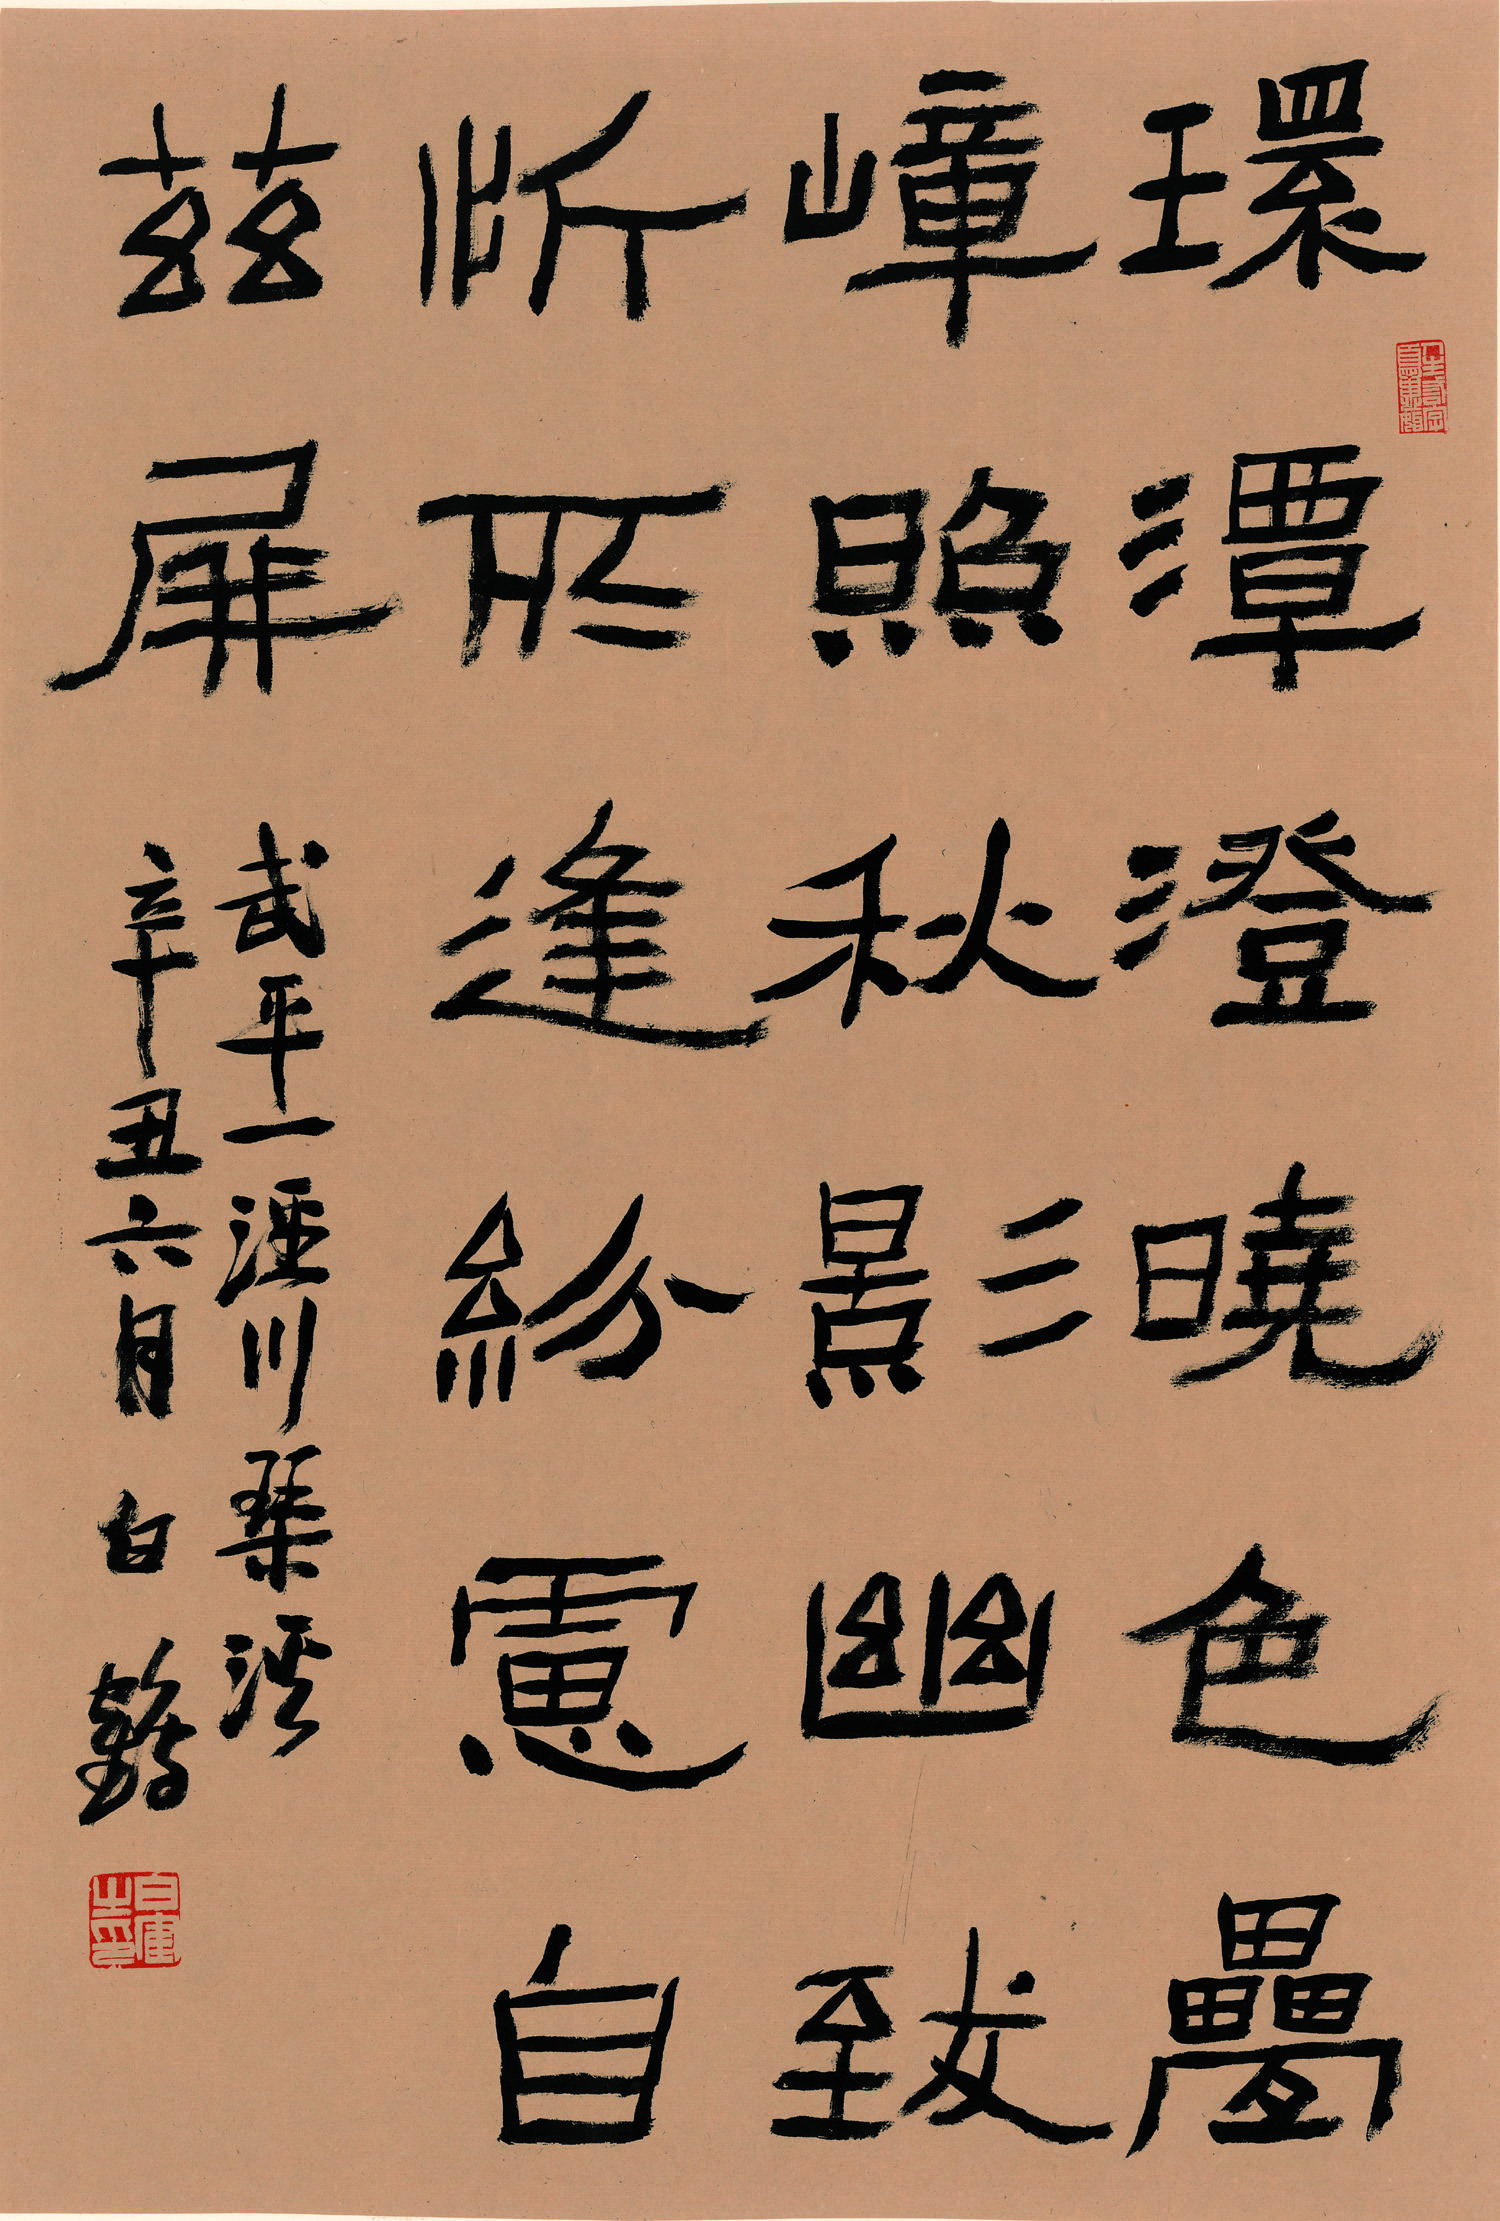 環潭澄曉色疊
嶂照秋影幽致
忻所逢紛慮自
茲屏
武平一涇川琴溪
辛丑六月 白鶴